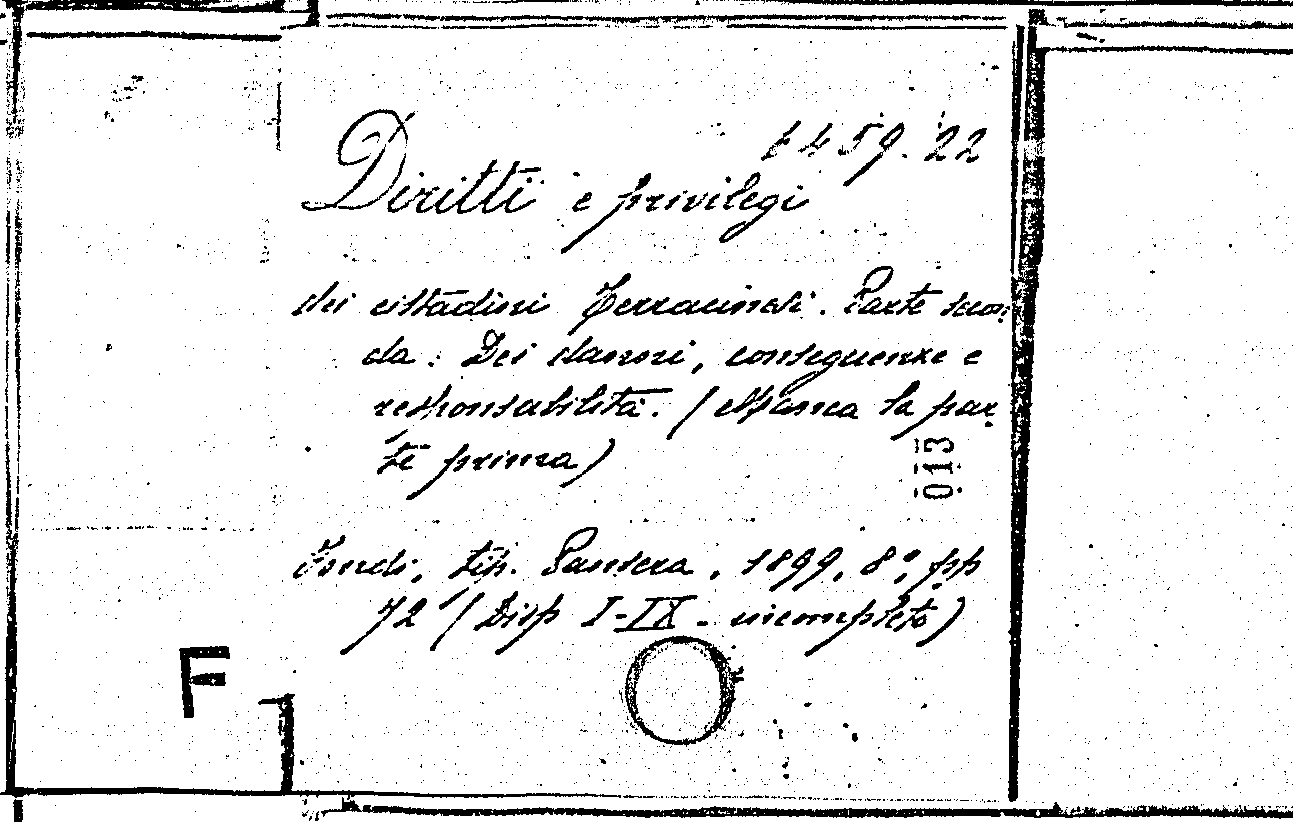 6459.22
Diritti e privilegi
dei cittadini Terracinesi. Parte secon
da: Dei danni, conseguenze e
responsabilità. (Manca la par
te prima)
013
Fondi, tip. Pansera, 1899, 8°, pp
72 (Disp I-IX - incompleto)
F